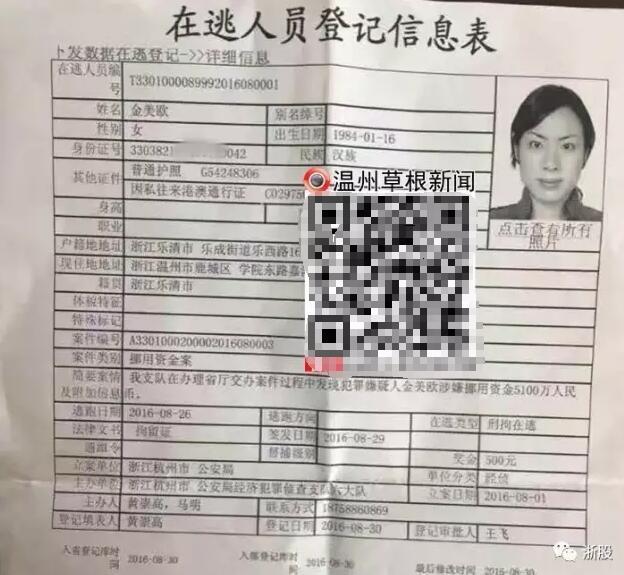 在逃人员登记信息表
卜发数据在逃登记->>详细信息
在逃人员编号 T3301000089992016080001
姓名 金美欧 别名绰号
性别 女 出生日期 1984-01-16
身份证号 330382 0042 民族 汉族
其他证件 普通护照 G54248306
因私往来港澳通行证 C02975
温州草根新闻
身高
职业
点击查看所有照片
户籍地地址 浙江乐清市 乐成街道乐西路16
现住地地址 浙江温州市鹿城区 学院东路嘉
籍贯 浙江乐清市
体貌特征
特殊标记
案件编号 A3301000200002016080003
案件类别 挪用资金案
简要案情及附加信息 我支队在办理省厅交办案件过程中发现犯罪嫌疑人金美欧涉嫌挪用资金5100万人民币。
逃跑日期 2016-08-26 逃跑方向 在逃类型 刑拘在逃
法律文书 拘留证 签发日期 2016-08-29
通缉令 督捕级别 奖金 500元
立案单位 浙江杭州市 公安局 单位分类 经侦
主办单位 浙江杭州市 公安局经济犯罪侦查支队六大队 立案日期 2016-08-01
主办人 黄崇高,马明 联系方式 18758860869
登记填表人 黄崇高 登记日期 2016-08-30 登记审批人 王飞
入省登记库时间 2016-08-30 入部登记库时间 2016-08-30 最后修改时间 2016-08-30
浙股